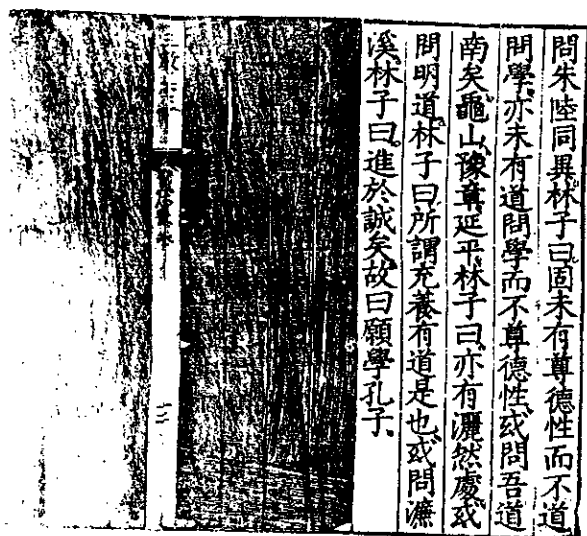 問朱陸同異林子曰固未有尊德性而不道
問學亦未有道問學而不尊德性或問吾道
南矣龜山豫章延平林子曰亦有灑然處或
問明道林子曰所謂充養有道是也或問濂
溪林子曰進於誠矣故曰願學孔子